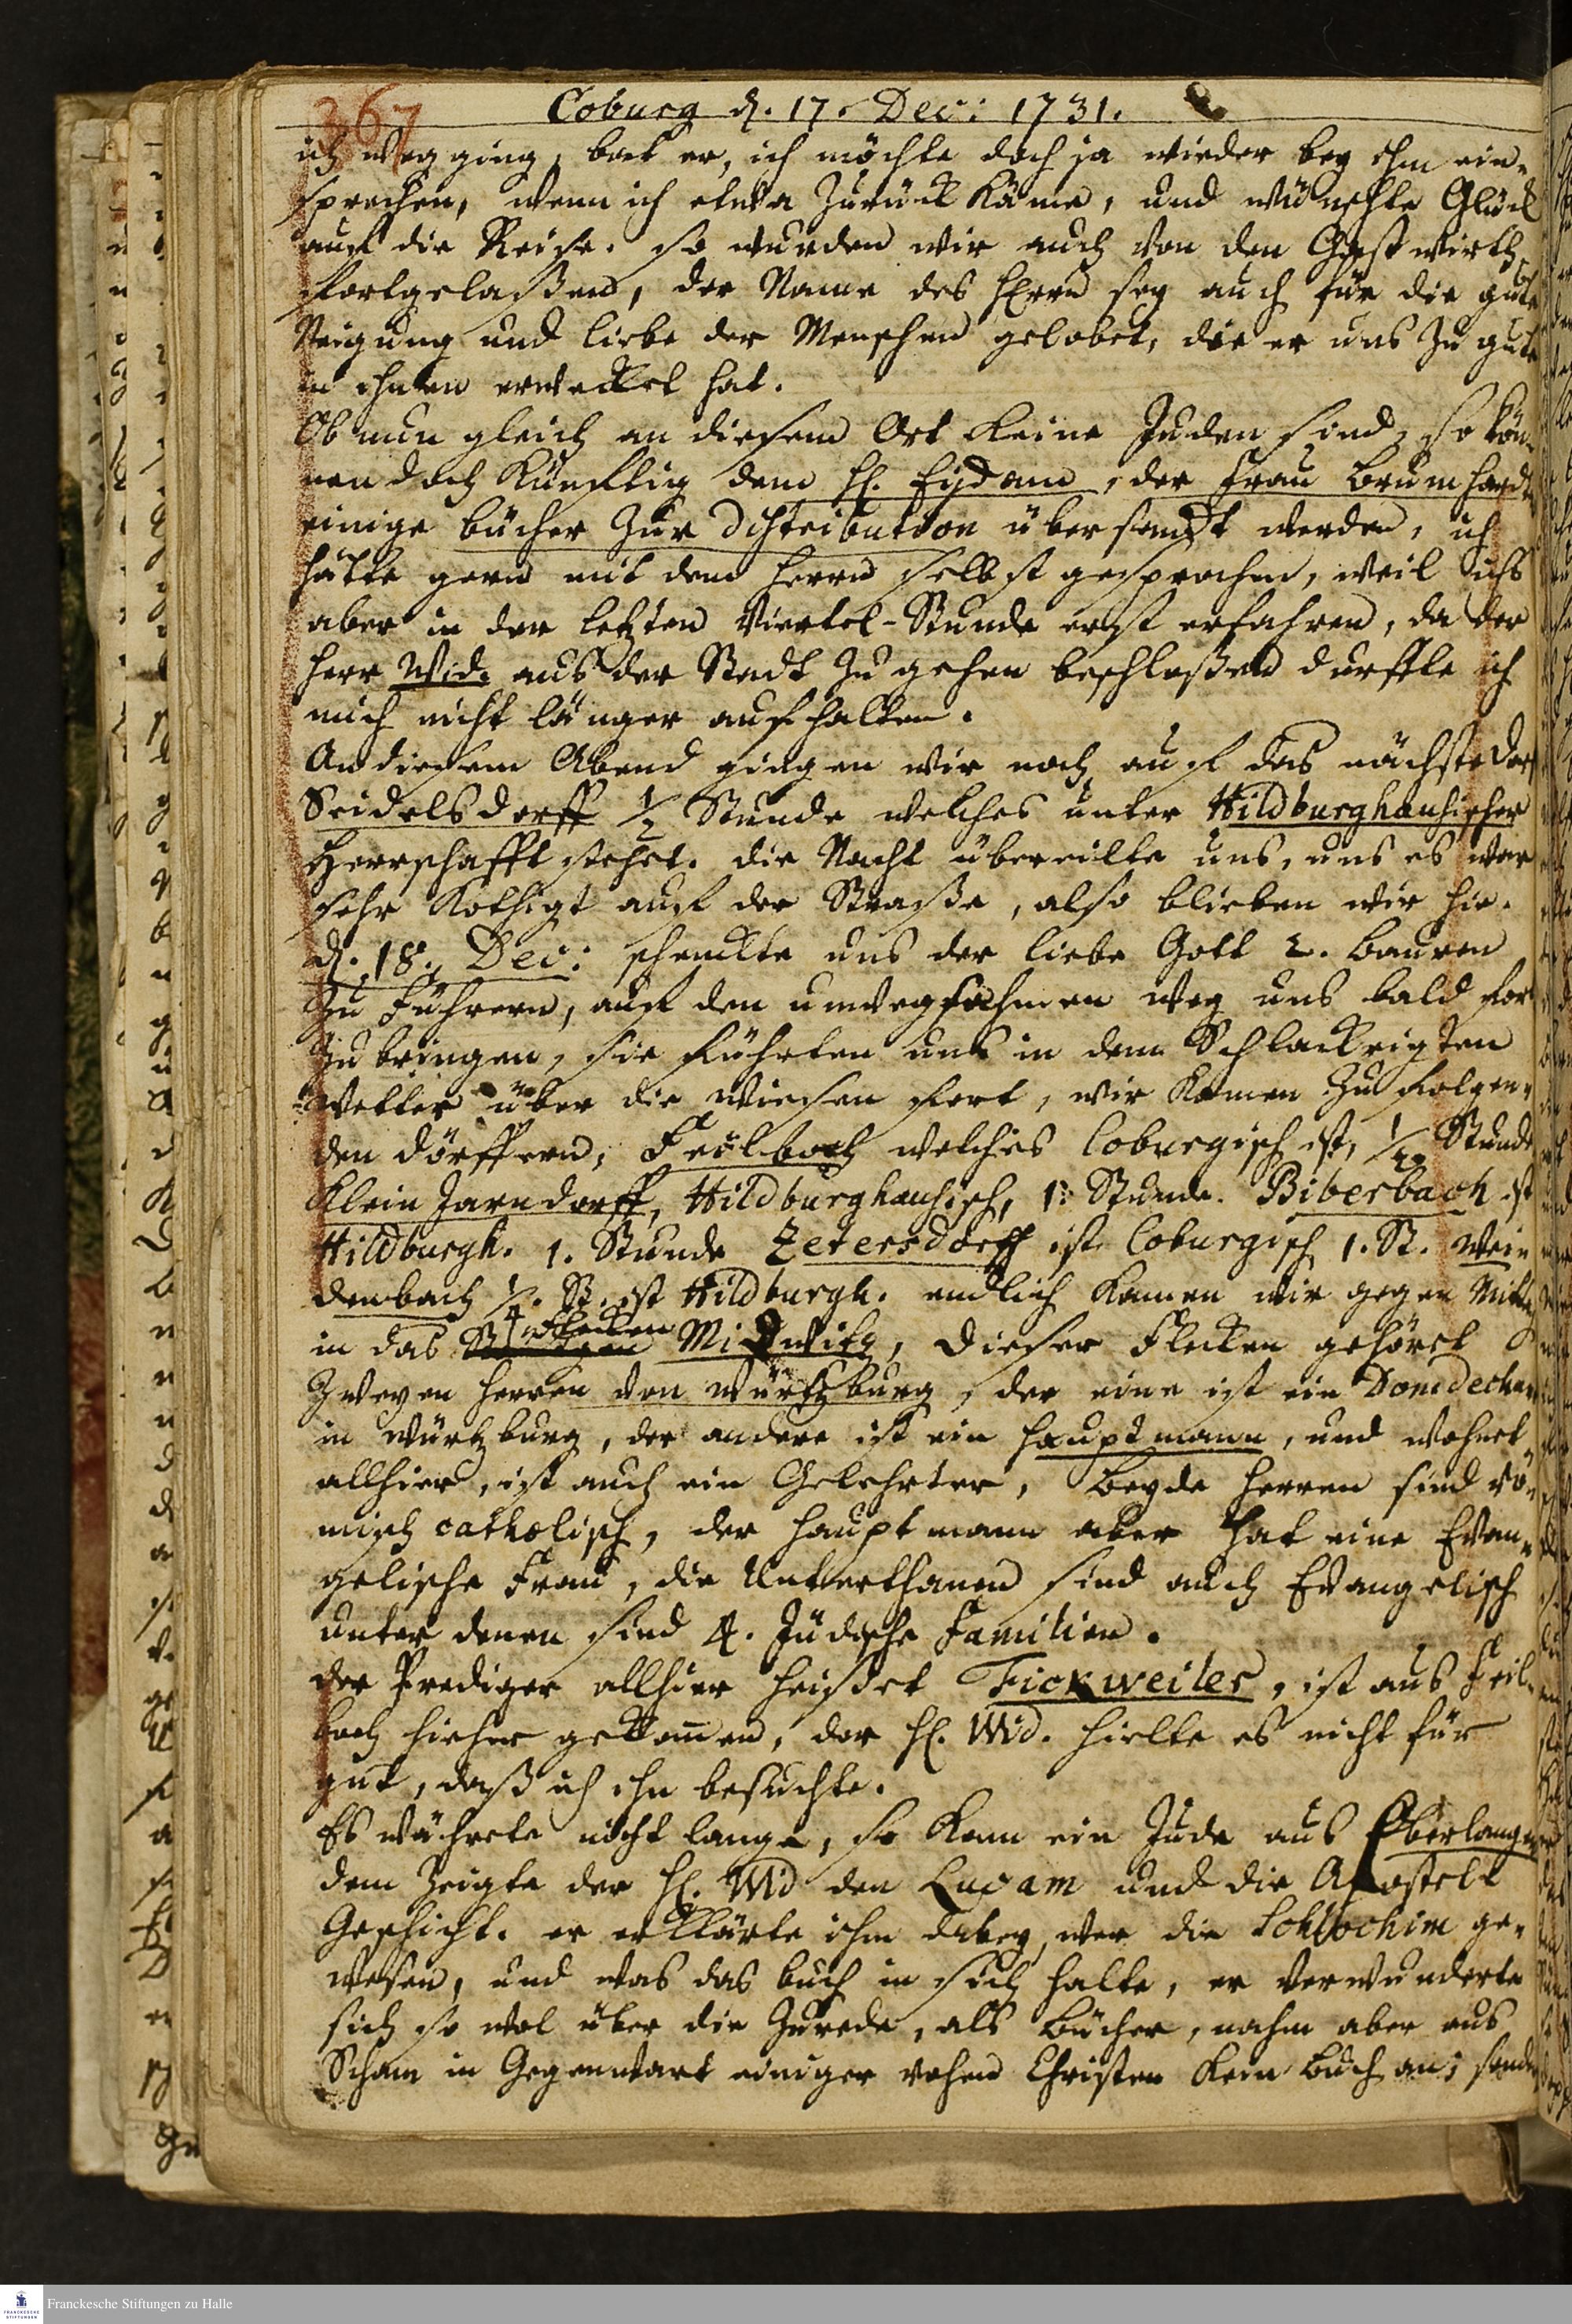 367
Coburg d. 17. Dec: 1731.
ich weg ging, bat er, ich möchte doch ja wieder bey ihm ein-
sprechen, wenn ich etwa zurück käme, und wünschte Glück
auf die Reise. so wurden wir auch von den Gastwirth
fortgelaßen, der Name des HErrn sey auch für die gute
Neigung und liebe der Menschen gelobet, die er uns zu gute
in ihnen erwecket hat.
Ob nun gleich an diesem Ort keine Juden sind, so kön-
nen doch künftig dem H. Eydam, der Frau Brumhardt
einige bücher zur distribution übersandt werden, ich
hätte gern mit dem Herrn selbst gesprochen, weil ichs
aber in der letzten Viertel-Stunde erst erfahren, da der
Herr Wid. aus der Stadt zu gehen beschloßen durffte ich
mich nicht länger aufhalten.
An diesem Abend gingen wir noch auf das nächste Dorf
Seidelsdorff 1/2 Stunde welches unter Hildburghausischer
Herrschafft stehet. die Nacht übereilte uns, uns es war
sehr kothigt auf der Straße, also blieben wir hie.
d. 18. Dec: schenckte uns der liebe Gott 2. Bauren
zu Führern, auf den unwegsahmen weg uns bald fort
zu bringen, sie führten uns in dem Schlackrigten
wetter über die wiesen fort, wir kamen zu folgen-
den dörffern, Feilbach welches Coburgisch ist, 1/2 Stunde
Klein Zarndorff, Hildburghausisch, 1. Stunde. Biberbach ist
Hildburgh. 1. Stunde Zetersdorff ist Coburgisch 1. St. Wein
denbach 1/4. St. ist Hildburgh. endlich kamen wir gegen Mittag
in das Flecken Midwitz, dieser Flecken gehöret
Zweyen Herren von Würtzburg, der eine ist ein Domdechant
in Würtzburg, der andere ist ein Hauptmann, und wohnet
allhier, ist auch ein Gelehrter, Beyde Herren sind rö-
misch catholisch, der Hauptmann aber hat eine Evan-
gelische Frau, die Unterthanen sind auch Evangelisch
unter denen sind 4. Jüdische Familien.
der Prediger allhier heisset Fickweiler, ist aus Feil-
bach hieher gekommen, der H. Wid. hielte es nicht für
gut, daß ich ihn besuchte.
Es währete nicht lange, so kam ein Jude aus Oberlangen
dem zeigte der H. Wid den Lucam und die Apostell
Geschicht. er erklärte ihm dabey, wer die Schlochim ge-
wesen, und was das buch in sich halte, er verwunderte
sich so wol über die Zurede, als Bücher, nahm aber aus
Scham in Gegenwart einiger rohen Christen kein Buch an; sondern
Franckesche Stiftungen zu Halle